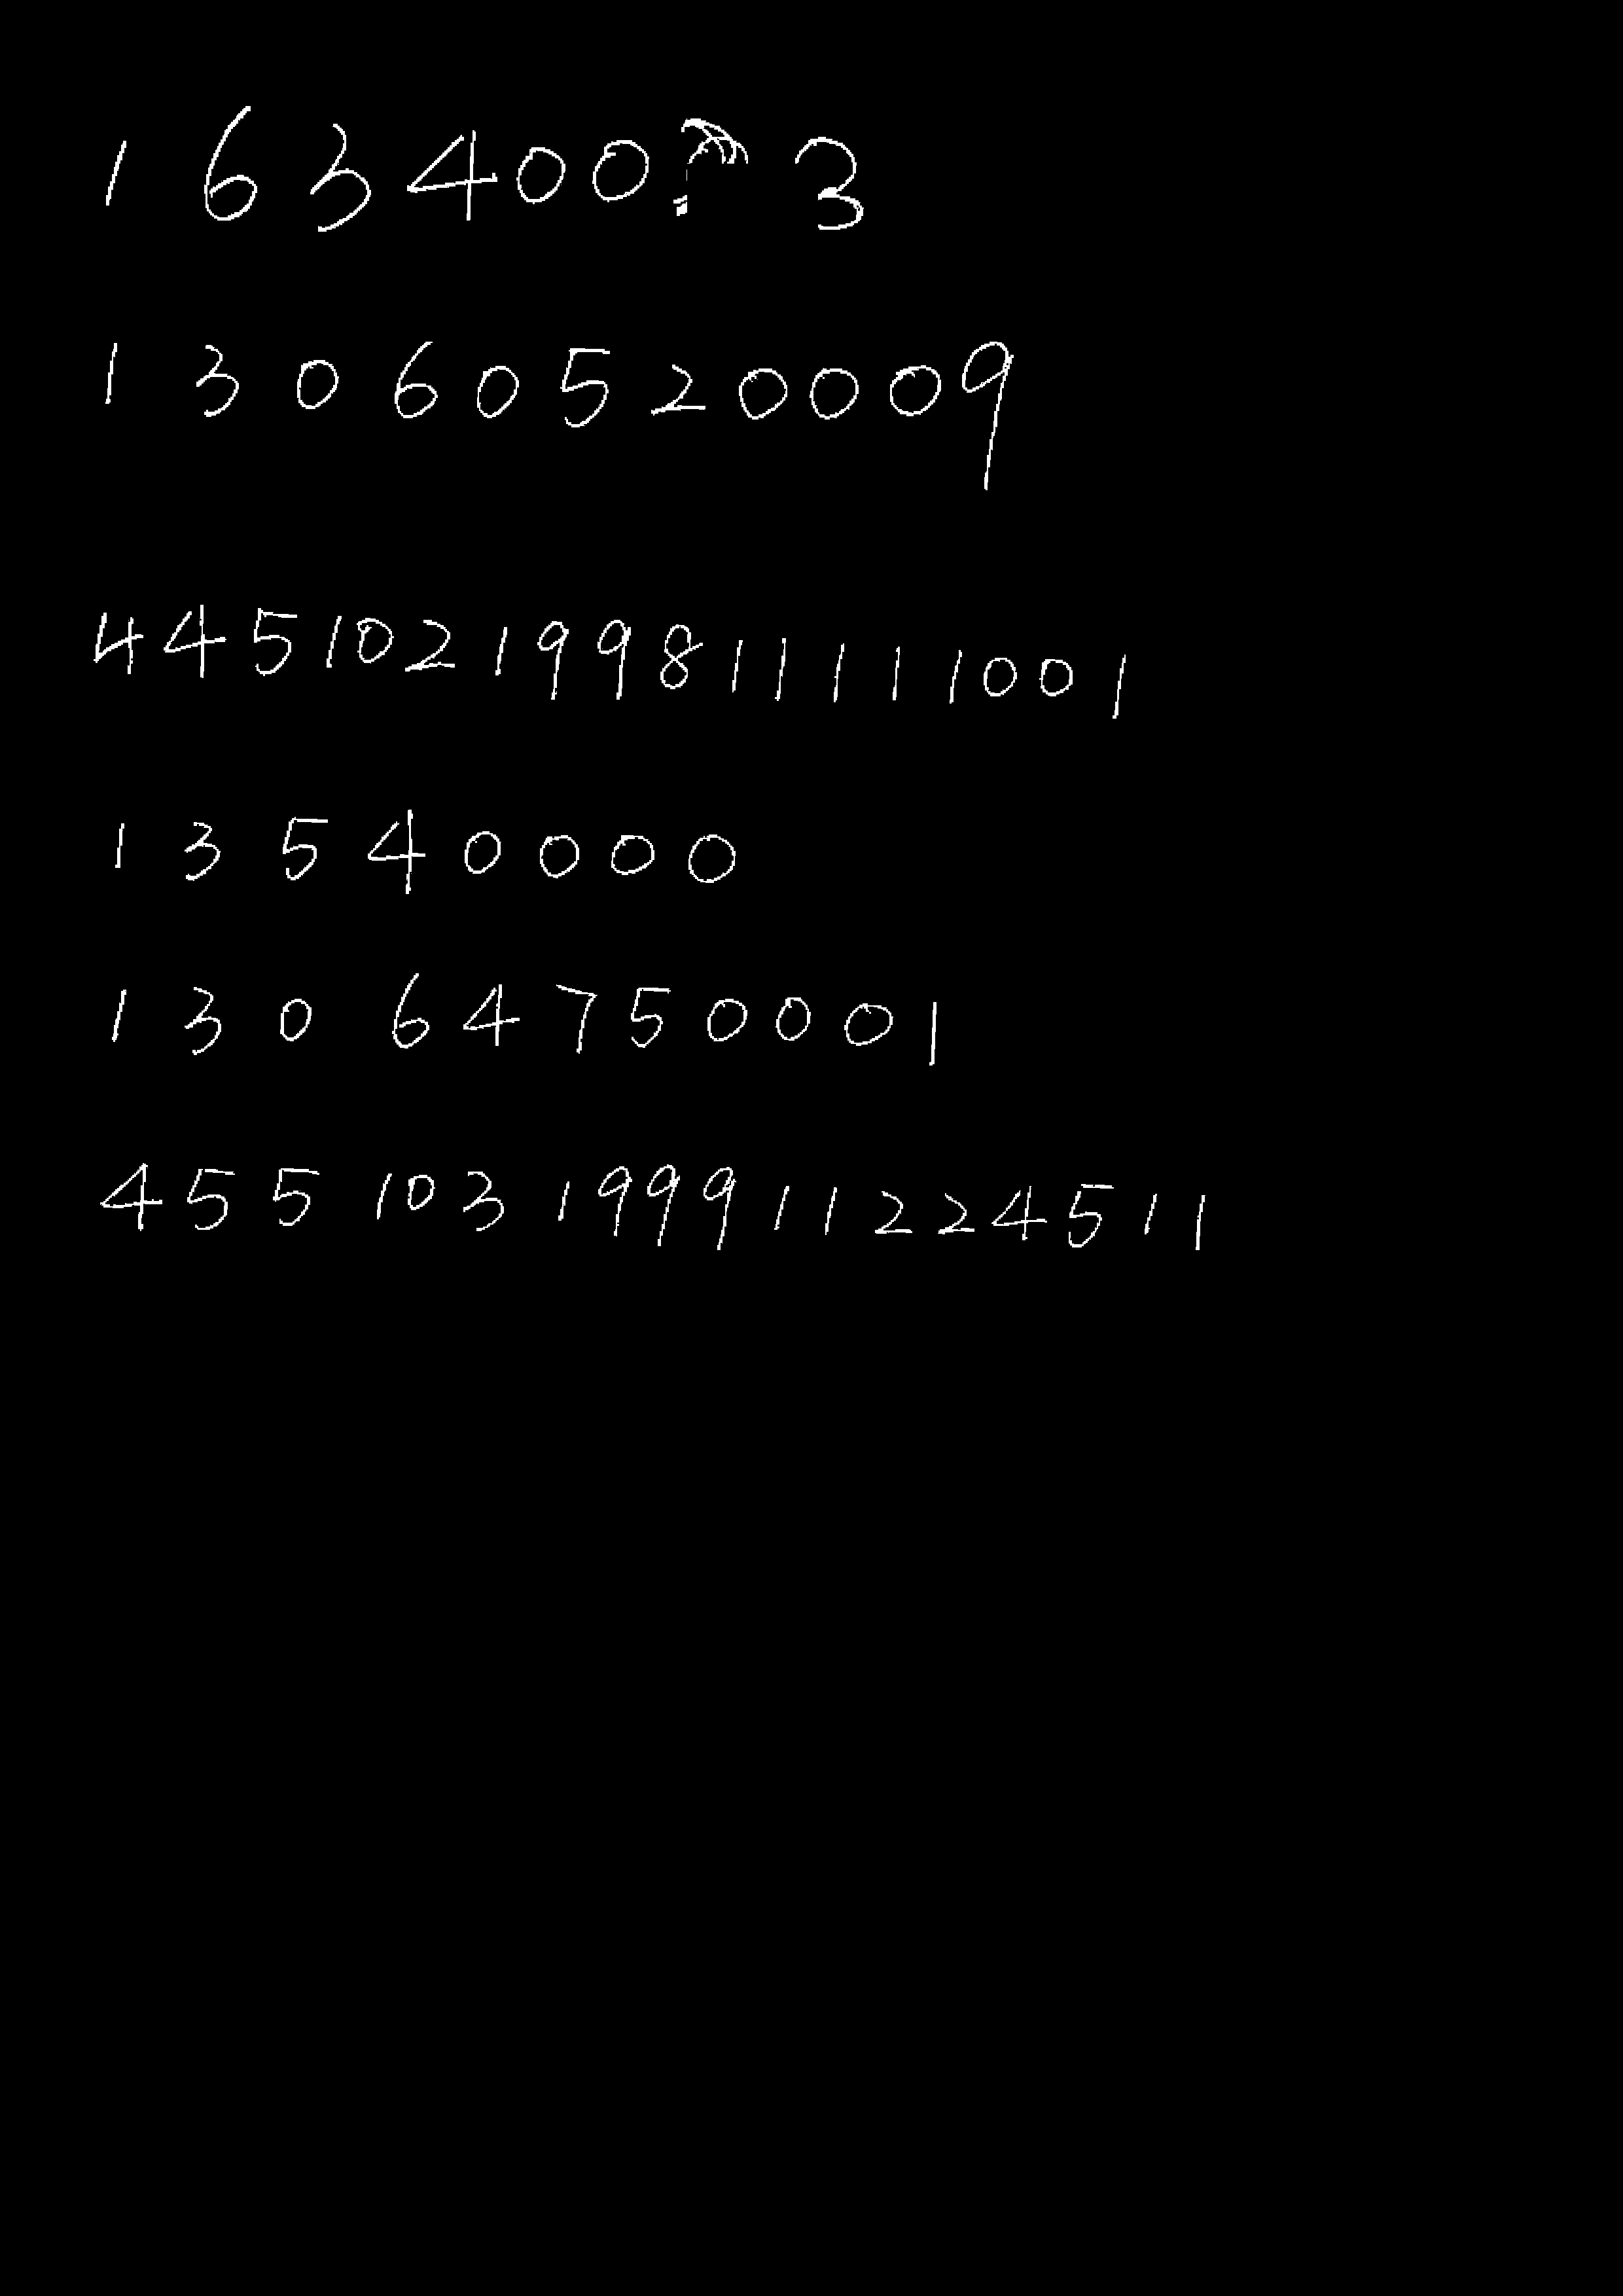 1634003
13060520009
445102199811111001
13540000
13064750001
455103199911224511